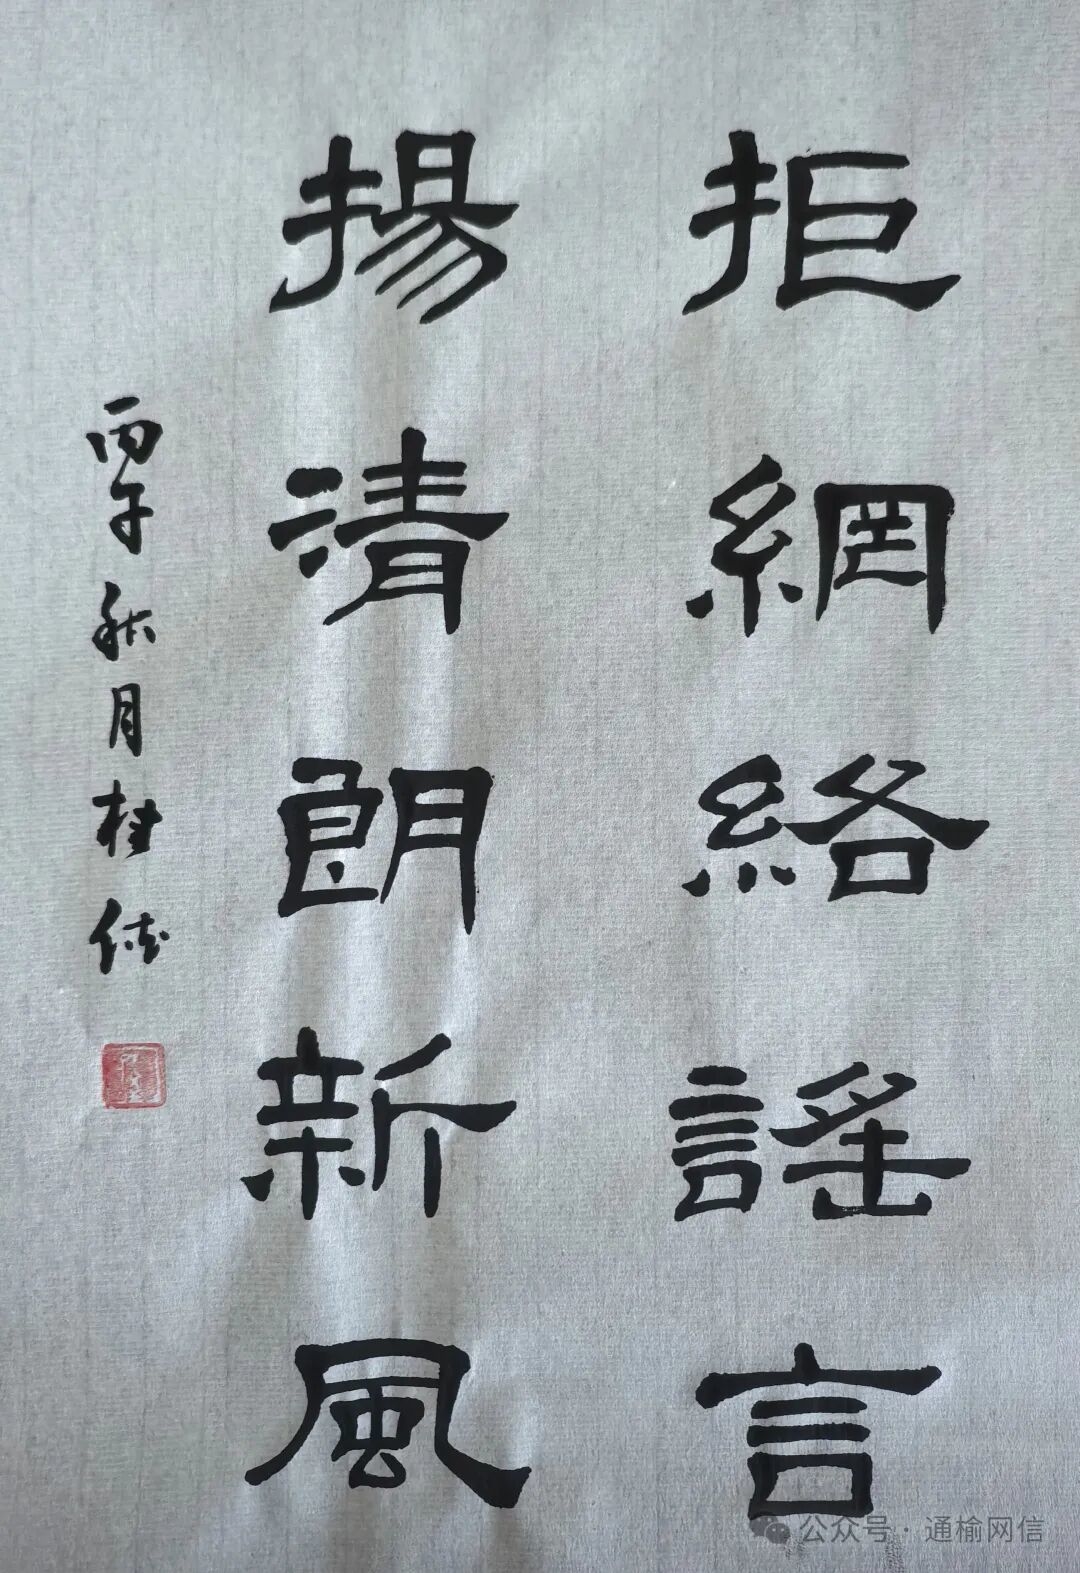 拒網絡謠言
揚清朗新風
丙午秋月桂
公众号·通榆网信